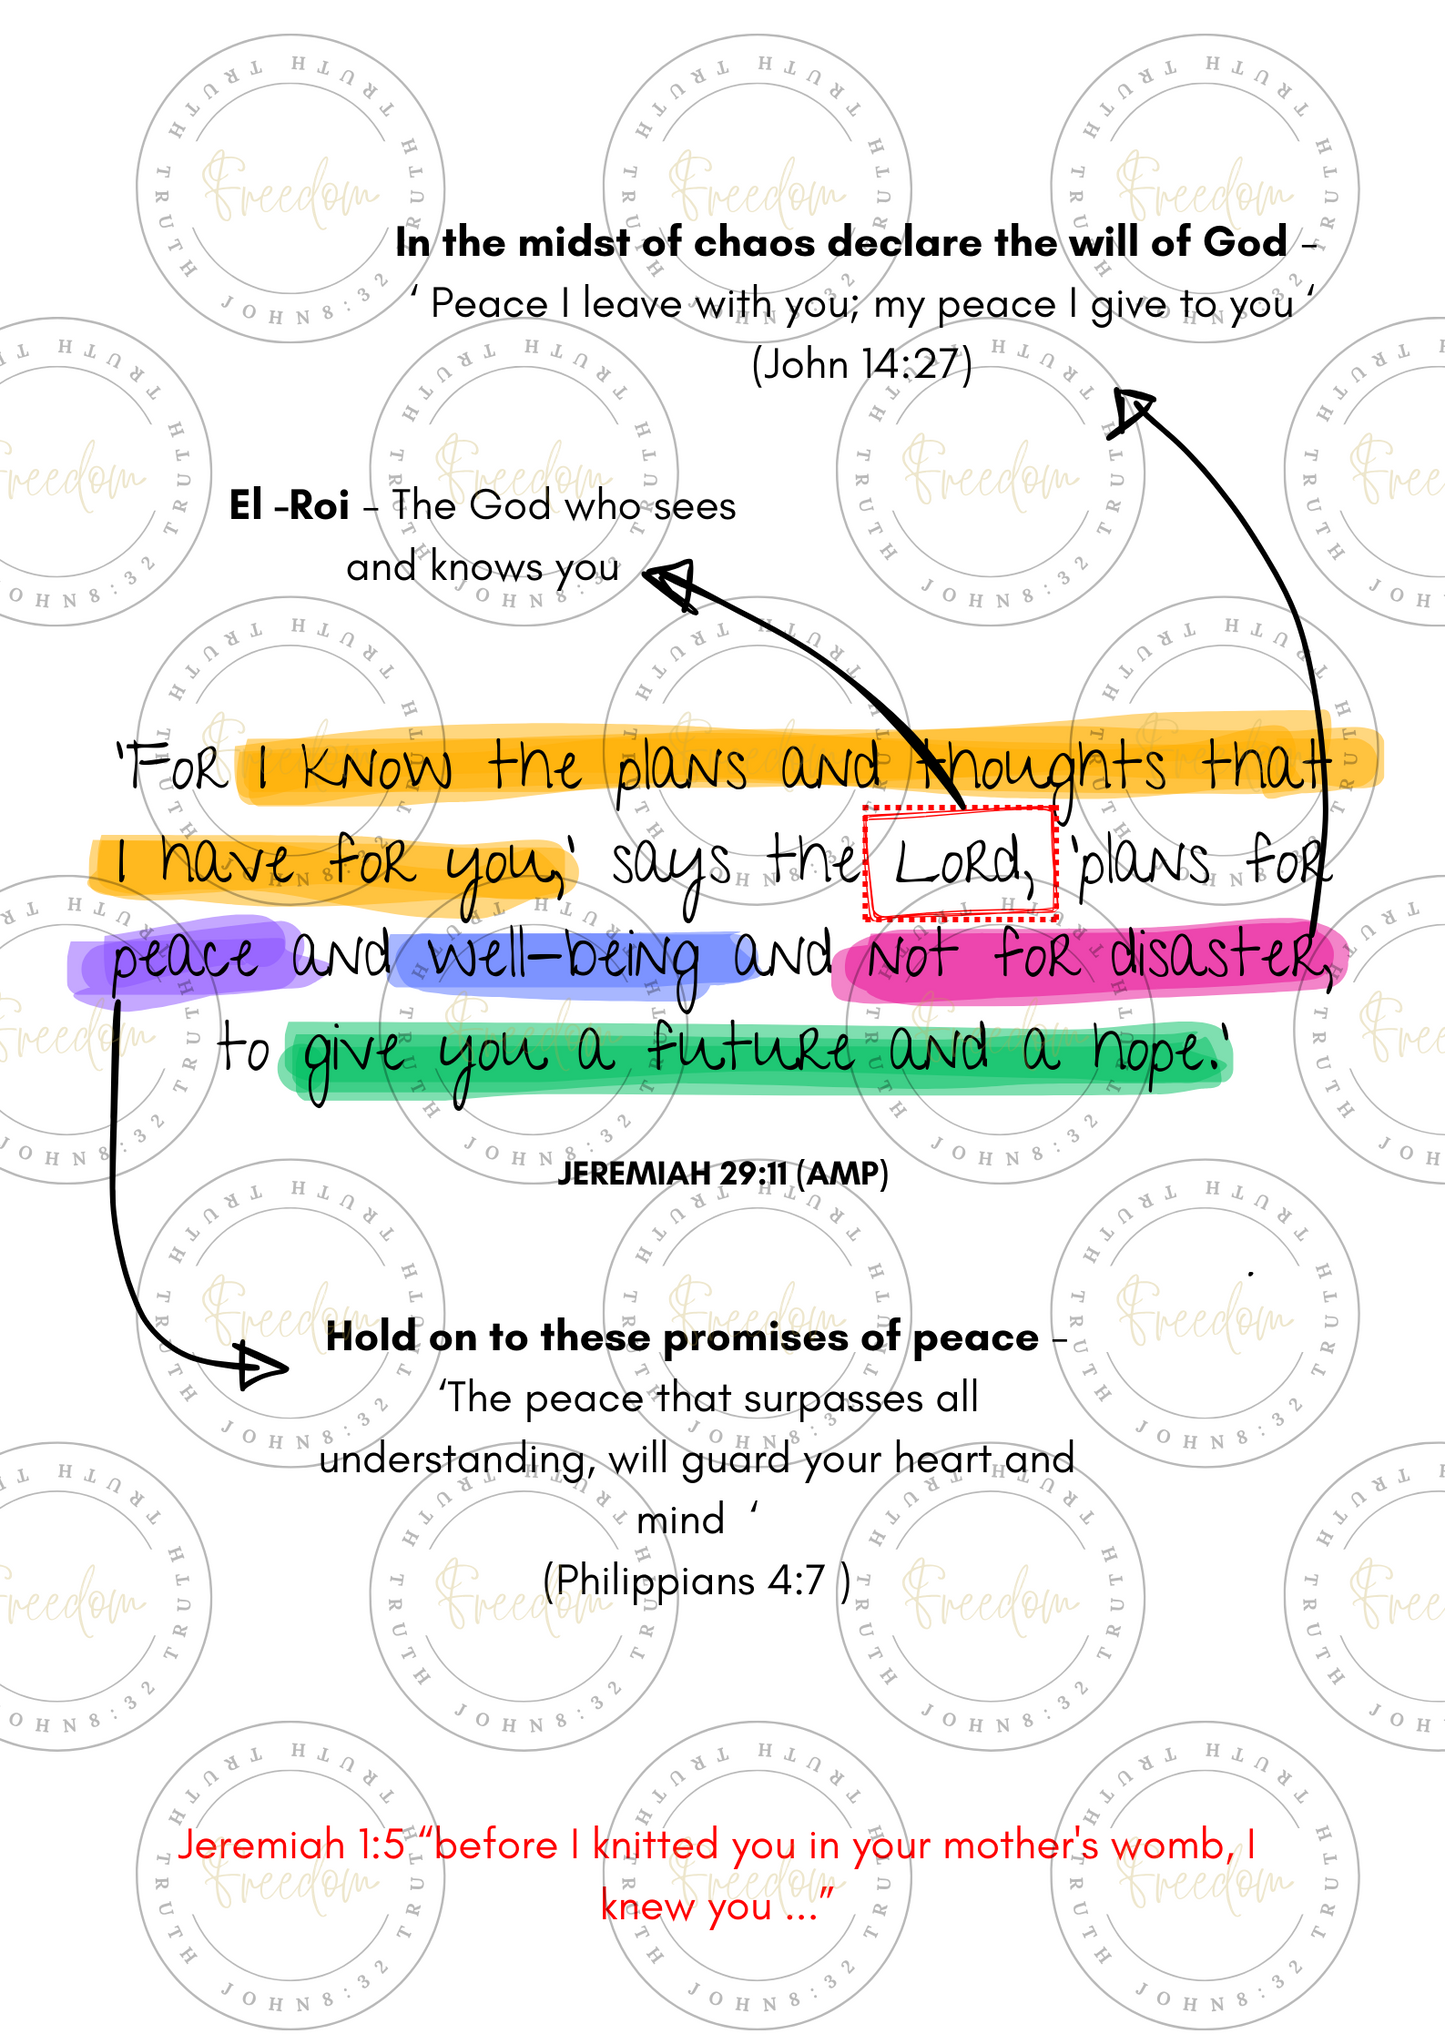 In the midst of chaos declare the will of God –
‘ Peace I leave with you; my peace I give to you ‘
(John 14:27)
El -Roi – The God who sees
and knows you
'For I know the plans and thoughts that
I have for you,' says the Lord, 'plans for
peace and well-being and not for disaster,
to give you a future and a hope.'
JEREMIAH 29:11 (AMP)
Hold on to these promises of peace –
‘The peace that surpasses all
understanding, will guard your heart and
mind ‘
(Philippians 4:7 )
Jeremiah 1:5 “before I knitted you in your mother's womb, I
knew you ...”
TRUTH TRUTH TRUTH JOHN 8:32
Freedom